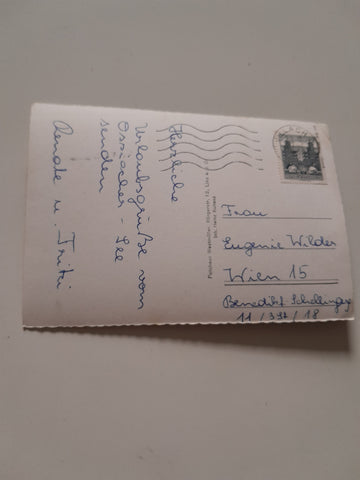 Herzliche
Urlaubsgrüße vom
Ossiacher - See
senden
Renate u. Fritzi
Frau
Eugenie Wilder
Wien 15
Benedikt Schellinger
11 / 397 / 18